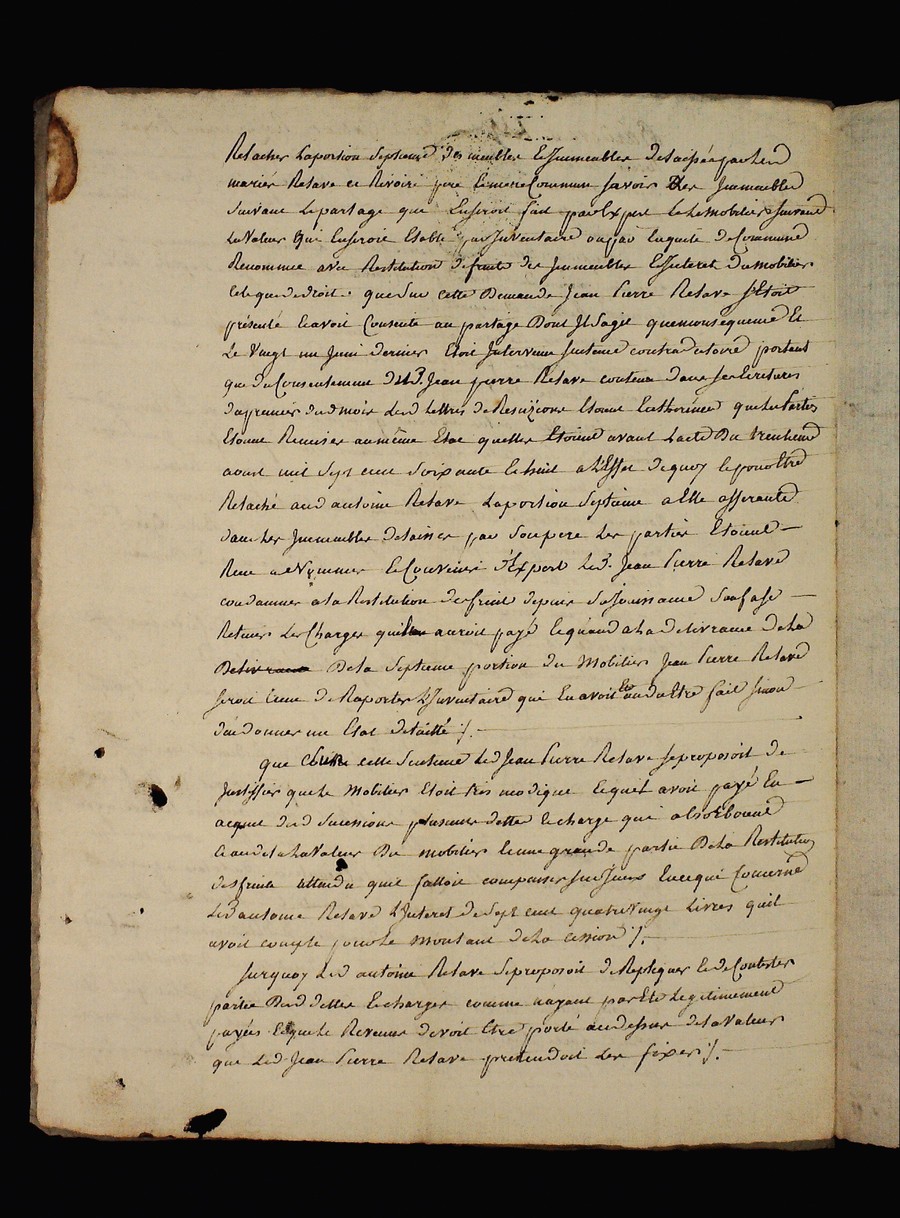 Relacher la portion Septieme des meubles Et Jmmeubles delaissés par Led
mariés Relave et Revoire pere Et mere Commun savoir Les Jmmeubles
Suivant Le partage que En seroit fait par Expert Et Le Mobilier suivant
La Valeur qui En seroit Etablie par Jnventaire ou par Enquete de Commune
Renommée avec Restitution de fruits des Jmmeubles Et Jnteret du mobilier
tel que de droit. que Sur cette Demande Jean Pierre Relave s'Etoit
présenté Et avoit Consenti au partage Dont Jl Sagit quen consequence Et
Le Vingt un Juin dernier Etoit Jntervenu sentence contradictoire portant
que du Consentement dud. Jean pierre Relave contenu dans ses Ecritures
du premier dud mois Les Lettres de Rescizion Etoient Enthérinées que Les Parties
Etoient Remises au même Etat quelles Etoient avant L'acte Du trentieme
aoust mil Sept cent Soixante et huit a L'Effet de quoy le pour Etre
Relaché aud antoine Relave La portion Septieme a Elle afferante
dans Les Jmmeubles delaissés par Son pere Les parties Etoient —
Renv a Nommer Et Convenir d'Expert Led. Jean Pierre Relave
condamné a la Restitution des fruits depuis Sa Jouissance Sauf a se —
Retenir Les Charges quil auroit payé Et quand a La delivrance de La
Delivrance De la Septieme portion du Mobilier Jean Pierre Relave
seroit tenu de Raporter L'Jnventaire qui En avoit Eté ou du Etre fait sinon
d'en donner un Etat détaillé ./. —
que cette Sentence Led Jean Pierre Relave se proposoit de
Justiffier que le Mobilier Etoit très modique Et quil avoit payé En —
acquit dud Sucession plusieurs dettes Et charge qui absorboient
Et audela La Valeur Du mobilier Et une grande partie De La Restitution
des fruits attendu quil falloit compenser Sur Jceux En ce qui Concerne
Led antoine Relave L'Jnteret de Sept cent quatre Vingt Livres quil
avoit compté pour Le montant de La cession ./. —
Surquoy Led antoine Relave Se proposoit de Repliquer Et de Contester
partie Desd dettes Et charges comme nayant pas Eté Legitimement
payés Et que Le Revenu devoit Etre porté au dessus de la Valeur
que Led Jean Pierre Relave pretendoit Les fixer ./. —